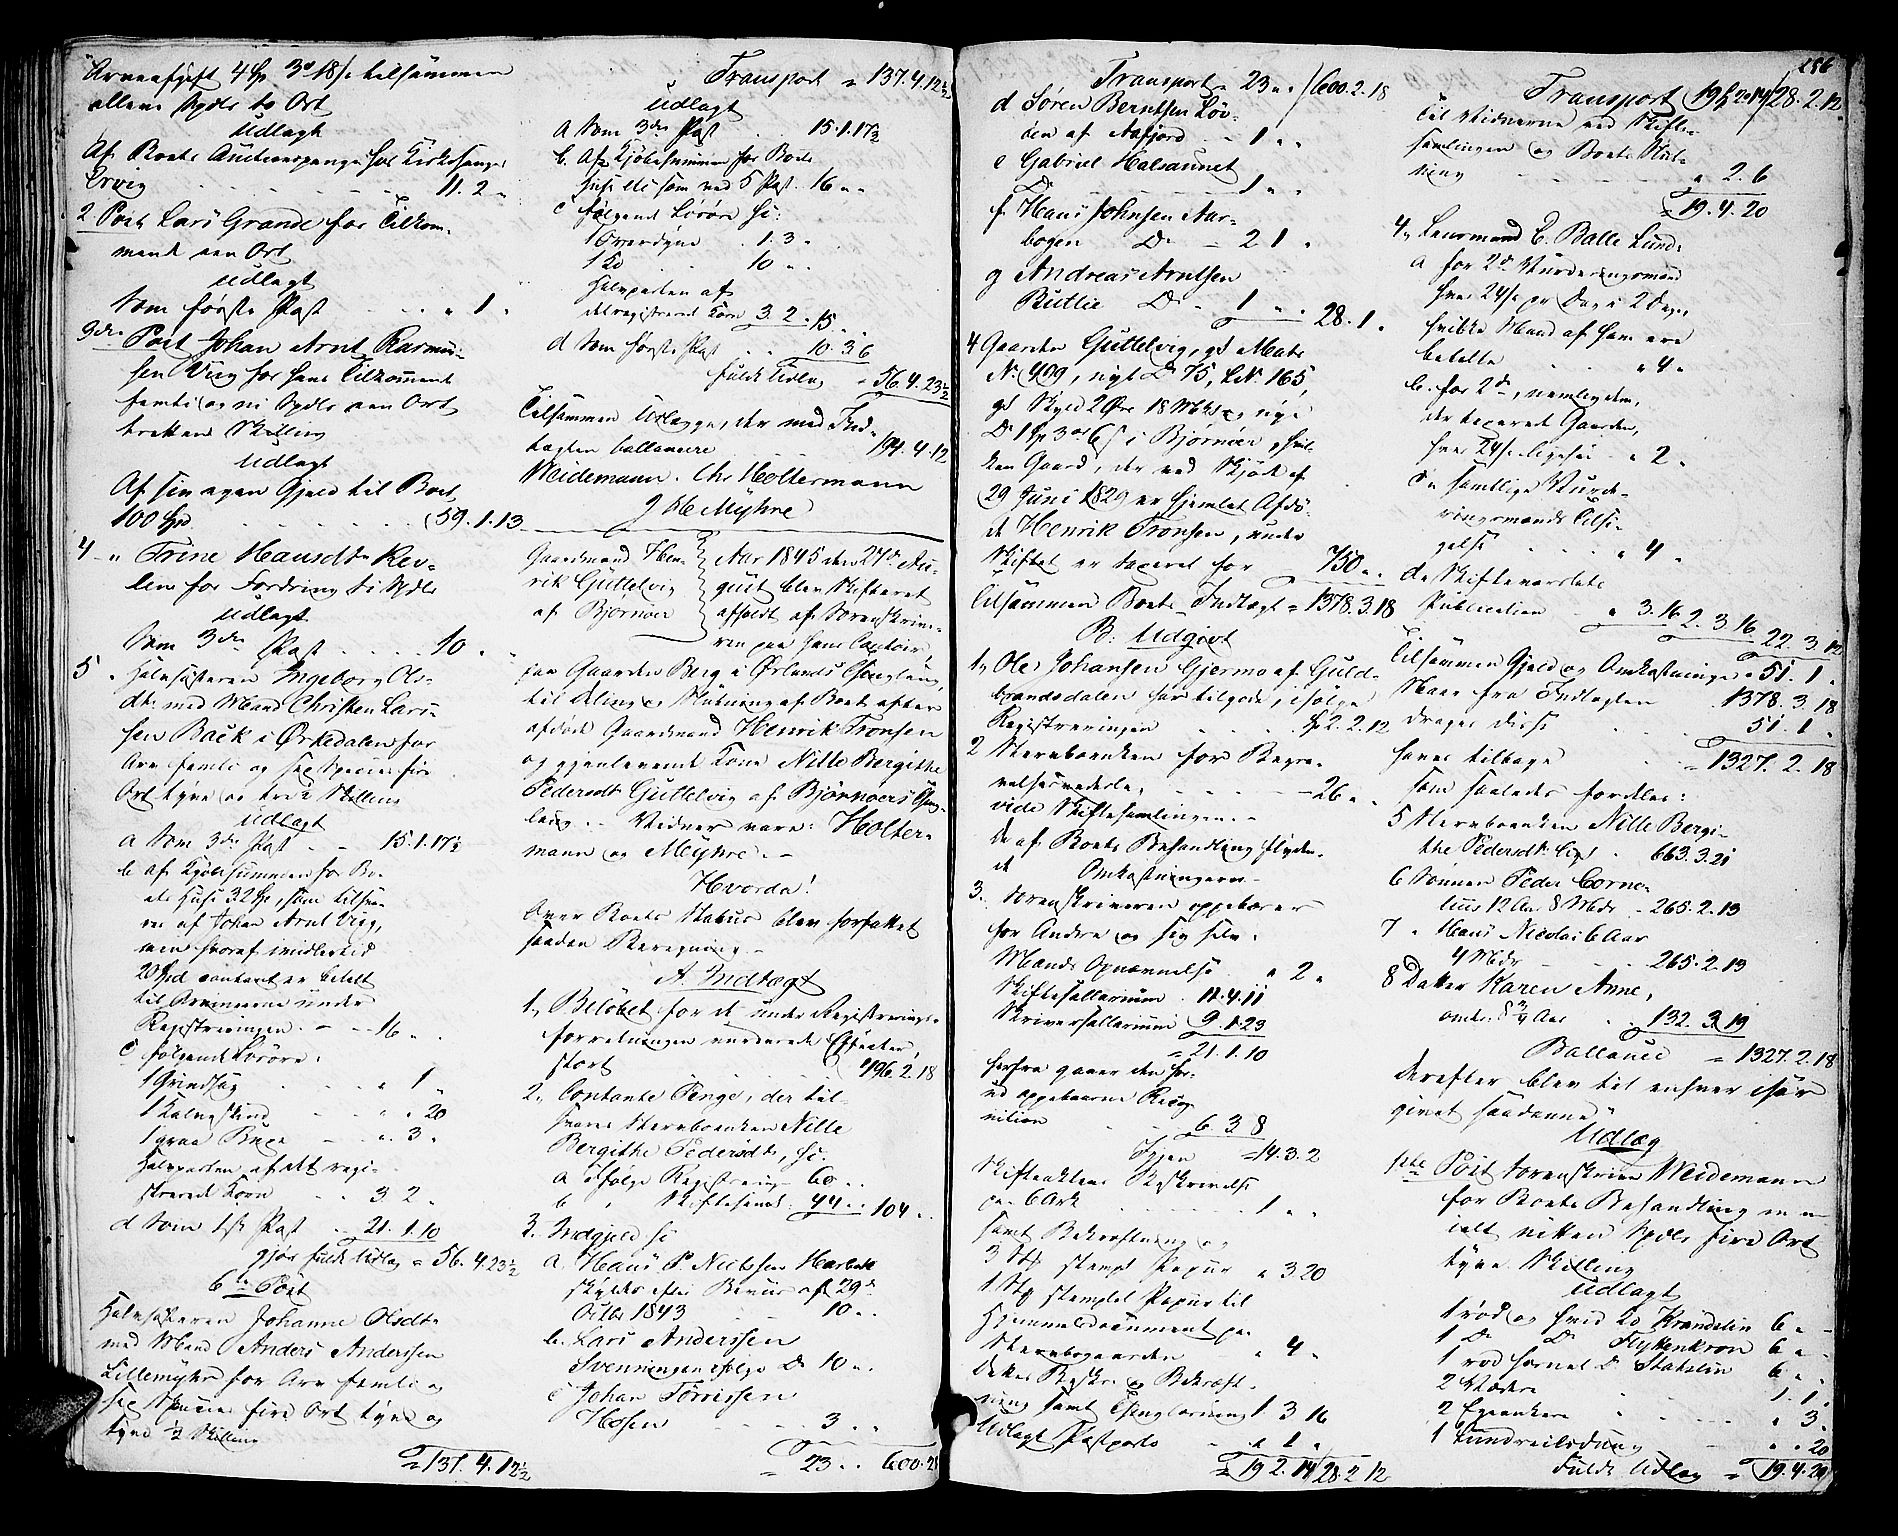 Arveafgift 4 Sp 3 # 18 s tilsammen
allene Spdlr to Ort
Udlagt
Af Boets Auctionspenge hos Kirkesanger
Ervig 11. 2 "
2 Post Lars Grande for Tilkom-
mende een Ort
Udlagt
Som første Post " 1 "
3die Post Johan Arnt Rasmus-
sen Viig for hans Tilkommende
femti og ni Spdlr een Ort
tretten Skilling
Udlagt
Af sin egen Gjeld til Boet
100 Spd 59. 1. 13
4 " Trine Hansdtr
for Fordring ti Spdlr
Udlagt
Som 3die Post 10 "
5 " Halvsøsteren Ingeborg Ols-
dtr med Mand Christen Lars-
sen Bach i Ørkedalen for
Arv femti og sex Species fire
Ort tyve og tre ½ Skilling
Udlagt
a Som 3die Post 15. 1. 17½
b. af Kjøbesummen for Bo-
ets Huse 32 Sp, som tilsva-
res af Johan Arnt Viig,
men hvoraf imidlertid
20 Spd contant er betalt
til Arvingerne under
Registreringen 16 "
c følgende Løsøre:
1 Grindsag " 1 "
1 Kalveskind " " 20
1 graa Buxe " 3 "
Halvparten af alt regi-
streret Korn 3 2 "
d Som 1ste Post 21. 1. 10
gjør fuldt Udlæg = 56. 4. 23½
6te Post
Halvsøsteren Johanne Olsdtr
med Mand Anders Anderssen
Lillemyhr for Arv femti og
sex Species fire Ort tyve og
tyve ½ Skilling
= 137. 4. 12½
Transport = 137. 4. 12½
Udlagt
a Som 3die Post 15. 1. 17½
b. Af Kjøbesummen for Boets
Huse der som ved 5 Post 16 " "
c følgende Løsøre Sc:
1 Overdyne 1. 3 "
1 Ko 10 " "
Halvparten af
det registrerede Korn 3 2 " 15 " "
d Som første Post 10. 3 6
fuldt Udlæg = 56. 4. 23½
Tilsammen Udlægge, der med Ind-
tægten ballancere 194. 4. 12
Weidemann. Chr Holtermann
J H Myhre
Gaardmand Hen-
rik Guttelvig
af Bjørnør
Aar 1845 den 27de Au-
gust blev Skifteret
afholdt af Sorenskrive-
ren paa hans Contoir
paa Gaarden Berg i Ørlands Thinglaug,
til Deling og Slutning af Boet efter
afdøde Gaardmand Henrik Tronsen
og gjenlevende Kone Nille Bergithe
Pedersdtr Guttelvig af Bjørnørs Thing-
laug. – Vidner vare: Holter-
mann og Myhre. –
Hvorda!
Over Boets Status blev forfattet
saadan Beregning. –
A. Indtægt
1, Beløbet for de under Registrerings-
forretningen vurderede Effecter,
stort 496. 2. 18
2, Contante Penge, der til-
svares Stervboenken Nille
Bergithe Pedersdtr, sc:
a ifølge Registrering 60 " "
b " Skiftesaml. 44 " " 104 " "
3. Indgjeld sc
a. Hans P. Nielssen Harbak
skylder efter Beviis af 29de
Octbr 1843 10 " "
b. Lars Anderssen
Svenningen ifølge Do 10 " "
c Johan Tørrissen
Hosen 3 " "
= 23 " " 600. 2 18
286
Transport = 23 " " 600. 2. 18
d Søren Berntsen Løv-
øen af Aafjord 1 " "
e Gabriel Halsaunet
Do 1 " "
f. Hans Johnsen Aar-
bogen Do 2 1 "
g Andreas Arntsen
Rutlie Do 1 " " 28. 1 "
4 Gaarden Guttelvig, gl Matr
No. 409, nyt Do 75, LNo 165,
gl Skyld 2 Øre 18 Mkl, nye
Do 1 Sp 3 ort 6 s i Bjørnør, hvil-
ken Gaard, der ved Skjøde af
29 Juni 1829 er hjemlet Afdø-
de Henrik Tronsen, under
Skiftet er taxeret for 750 " "
Tilsammen Boets Indtægt = 1378. 3. 18
B: Udgivt
1, Ole Johansen Gjermo af Guld-
brandsdalen har tilgode, ifølge
Registreringen Sp 2. 2. 12
2 Stervboenken for Begra-
velsesvederlag 26 " "
vide Skiftesamlingen. –
De af Boets Behandling flyden-
de Omkostninger. –
3. Sorenskriveren oppebærer
for Andre og sig selv:
Mands Opnævnelse " 2 "
Skiftesallarium 11. 4. 11
Skriversallarium 9. 1. 23
= 21. 1. 10
herfra gaaer den for-
ud oppebaarne Recog-
nition 6. 3 8
Igjen = 14. 3. 2
Skifteaktens Beskrivelse
paa 6 Ark 1 " "
samt Bekræftning og
3 Stk stempl Papir " 3 20
1 Stk stemplet Papir til
Hjemmelsdocument paa
Stervbogaarden " 4 "
dettes Beskr og Bekræft-
ning samt Thinglæsning 1 3 16
Udlagt Postporto " 1 "
= 19 2. 14 28. 2 12
Transport 19 2. 14 28. 2. 12
Til Vidnerne ved Skifte-
samlingen og Boets Slut-
ning " 2. 6
= 19. 4. 20
4, Lensmand C. Balle Lund:
a for 2de Vurderingsmænd
hver 24 s pr Dag i 2 Dage,
hvilke Mænd af ham ere
betalte " 4 "
b. for 2de, nemlig dem,
der taxerede Gaarden,
hver 24 s ligesaa " 2 "
c samtlige Vurde-
ringsmænds Tilsi-
gelse " 4 "
d Skifteværslets
Publication " 3. 16 2. 3 16 22 3. 12
Tilsammen Gjeld og Omkostninger = 51. 1 "
Naar fra Indtægten 1378. 3. 18
drages disse 51. 1 "
haves tilbage = 1327. 2. 18
som saaledes fordeles:
5 Stervboenken Nille Bergi-
the Pedersdtr 663. 3. 21
6 Sønnen Peder Corne-
lius 12 Aar 8 Mdr 265. 2. 13
7 " Hans Nicolai 6 Aar
4 Mdr 265. 2. 13
8 Datter Karen Anne,
omtr. 8 ¾ Aar 132. 3 19
Ballance = 1327. 2. 18
derefter blev til enhver især
givet saadanne
Udlæg
1ste Post Sorenskriver Weidemann
for Boets Behandling m m
ialt nitten Spdlr fire Ort
tyve Skilling
Udlagt
1 rød og hvid Ko Krandelin 6 " "
1 Do Do Flekkenkron 6 " "
1 rød hornet Do Stakelin 6 " "
2 Vædere 1. 1 "
2 " 3 "
1 " " 20
Fuldt Udlæg = 19. 4. 20